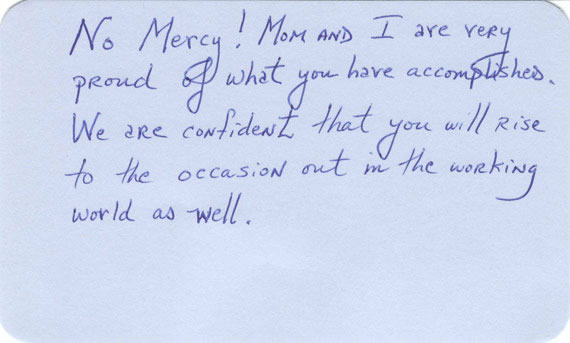 No Mercy! Mom and I are very
proud of what you have accomplished.
We are confident that you will rise
to the occasion out in the working
world as well.